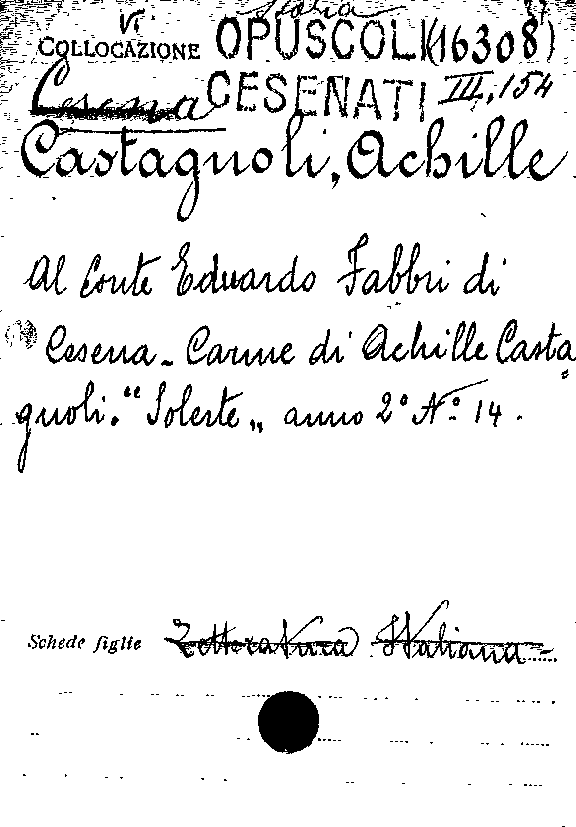 VI. Storia
COLLOCAZIONE OPUSCOLI (16308)
Cesena CESENATI III, 154
Castagnoli, Achille
Al Conte Eduardo Fabbri di
Cesena - Carme di Achille Casta
gnoli. "Solerte„ anno 2° N° 14.
Schede figlie Letteratura Italiana -